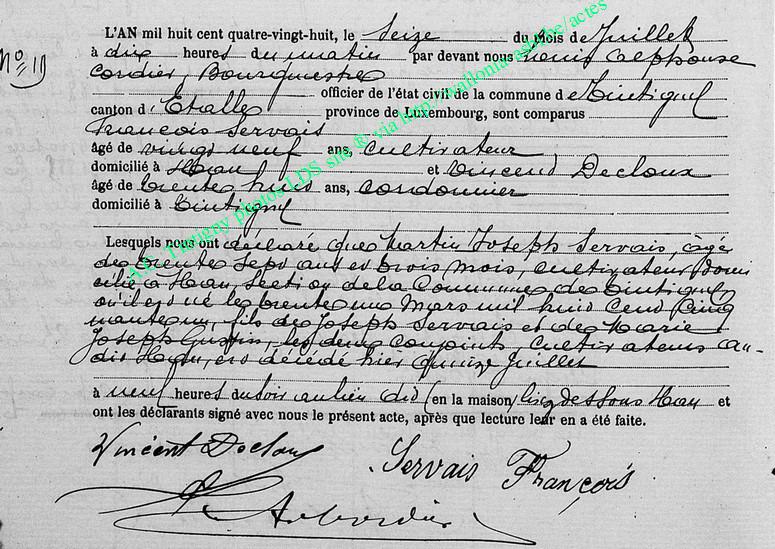 L'AN mil huit cent quatre-vingt-huit, le seize du mois de Juillet
No 19
à dix heures du matin par devant nous Louis Alphonse
Cordier, Bourgmestre
officier de l'état civil de la commune de Tintigny
canton d'Etalle province de Luxembourg, sont comparus
François Servais
âgé de vingt neuf ans, cultivateur
domicilié à Han et Vincend Decloux
âgé de trente huit ans, cordonnier
domicilié à Tintigny
Lesquels nous ont déclaré que Martin Joseph Servais, âgé
de trente sept ans et trois mois, cultivateur domi
cilié à Han, Section de la Commune de Tintigny
où il est né le trente un Mars mil huit cend cinq
uante un, fils de Joseph Servais et de Marie
Joseph Gustin, les deux conjoints, cultivateurs au
dit Han, est décédé hier quinze Juillet
à neuf heures du soir au lieu dit (en la maison) dessous Han et
ont les déclarants signé avec nous le présent acte, après que lecture leur en a été faite.
Vincent Decloux
Servais François
A.E. Tintigny photos LDS site © via http://wallonia-asbl.be/actes